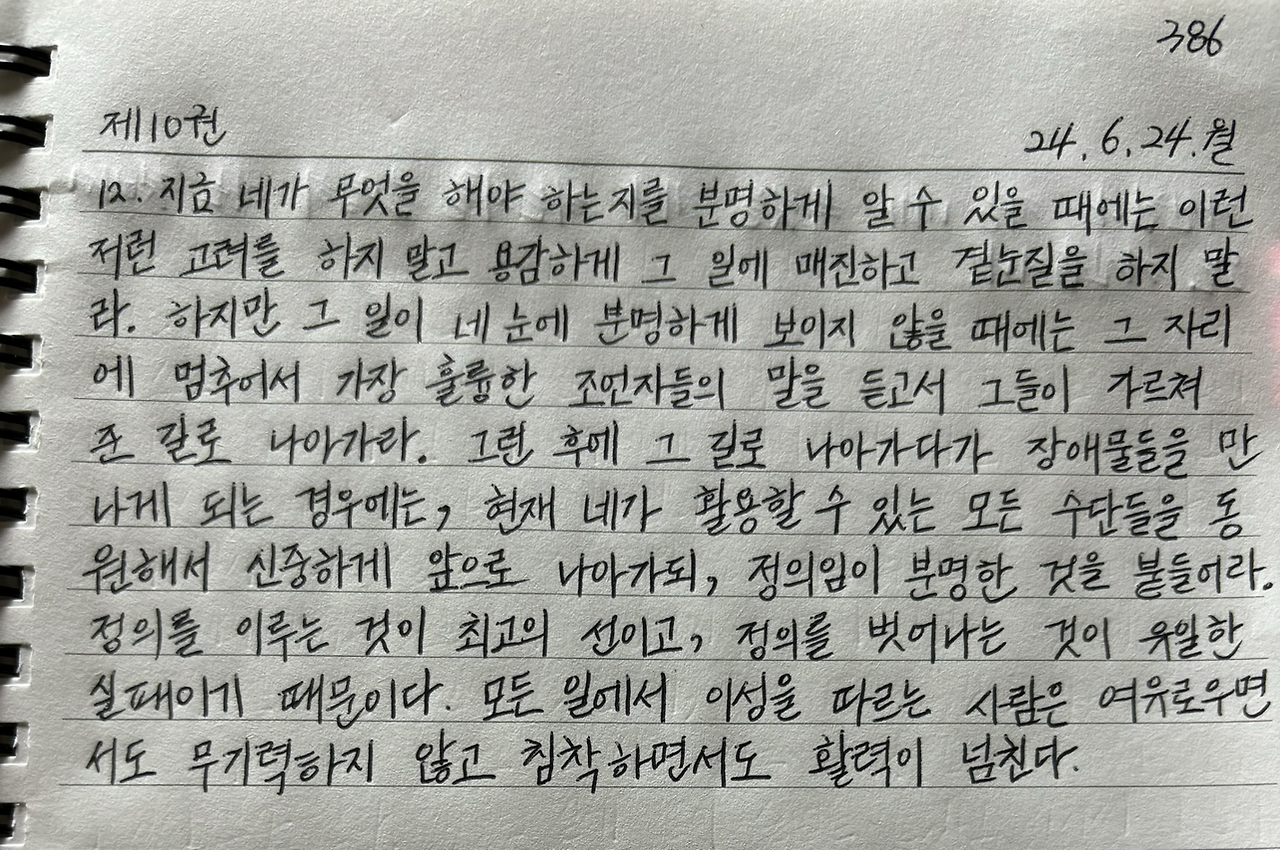 386
제10권 24.6.24.월
12. 지금 네가 무엇을 해야 하는지를 분명하게 알 수 있을 때에는 이런
저런 고려를 하지 말고 용감하게 그 일에 매진하고 곁눈질을 하지 말
라. 하지만 그 일이 네 눈에 분명하게 보이지 않을 때에는 그 자리
에 멈추어서 가장 훌륭한 조언자들의 말을 듣고서 그들이 가르쳐
준 길로 나아가라. 그런 후에 그 길로 나아가다가 장애물들을 만
나게 되는 경우에는, 현재 네가 활용할 수 있는 모든 수단들을 동
원해서 신중하게 앞으로 나아가되, 정의임이 분명한 것을 붙들어라.
정의를 이루는 것이 최고의 선이고, 정의를 벗어나는 것이 유일한
실패이기 때문이다. 모든 일에서 이성을 따르는 사람은 여유로우면
서도 무기력하지 않고 침착하면서도 활력이 넘친다.